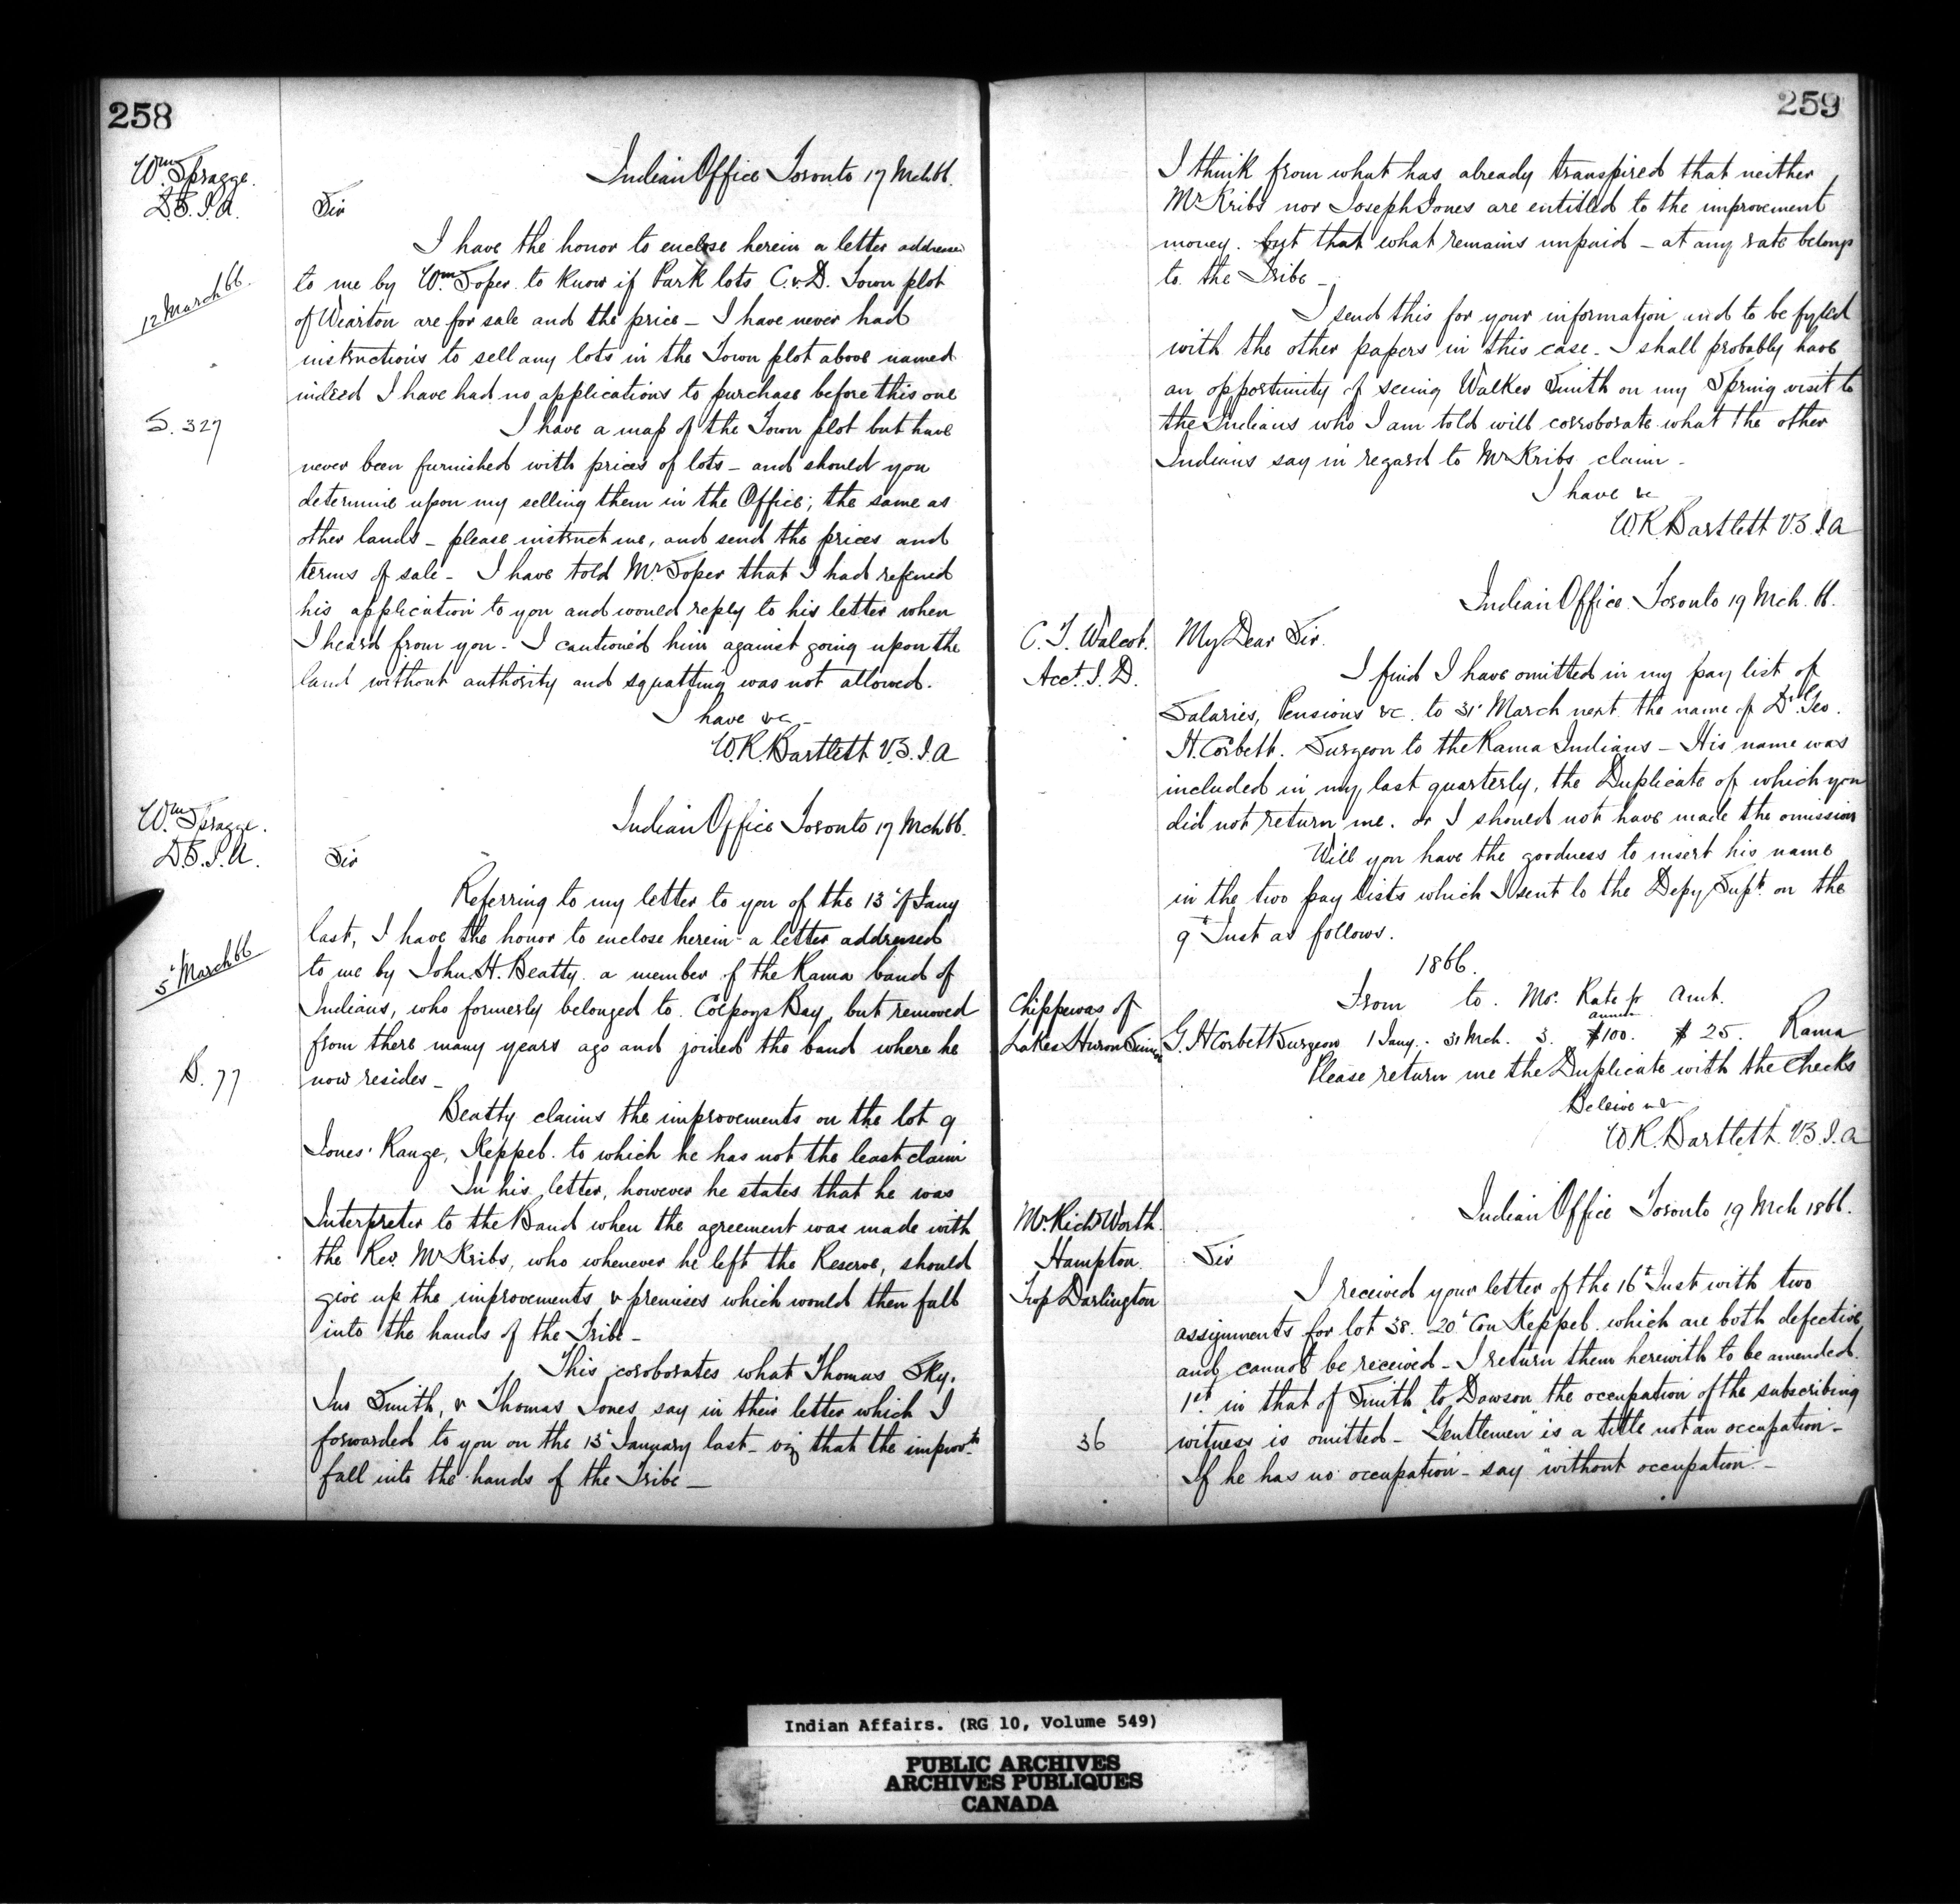 258
Wm Spragge.
D.S.I.A.
Indian Office Toronto 17 Mch 66.
Sir
I have the honor to enclose herein a letter addressed
12 March 66.
to me by Wm Soper to know if Park lots C. & D. Town plot
of Wiarton are for sale and the price _ I have never had
instructions to sell any lots in the Town plot above named
indeed I have had no applications to purchase before this one
S. 327
I have a map of the Town plot but have
never been furnished with prices of lots _ and should you
determine upon my selling them in the Office; the same as
other lands _ please instruct me, and send the prices and
terms of sale _ I have told Mr Soper that I had referred
his application to you and would reply to his letter when
I heard from you - I cautioned him against going upon the
land without authority and squatting was not allowed.
I have &c _
W.R. Bartlett V.S.I.A
Wm Spragge.
D.S.I.A.
Indian Office Toronto 17 Mch 66.
Sir
Referring to my letter to you of the 13t of Jany
last, I have the honor to enclose herein a letter addressed
5t March 66
to me by John H. Beatty a member of the Rama band of
Indians, who formerly belonged to Colpoys Bay, but removed
from there many years ago and joined the band where he
B. 77
now resides _
Beatty claims the improvements on the lot 9
Jones' Range, Keppel. to which he has not the least claim
In his letter, however he states that he was
Interpreter to the Band when the agreement was made with
the Rev. Mr Kribs, who whenever he left the Reserve, should
give up the improvements & premises which would then fall
into the hands of the Tribe _
This coroborates what Thomas Sky,
Jno Smith, & Thomas Jones say in their letter which I
forwarded to you on the 13t January last _ viz that the improvts
fall into the hands of the Tribe _
259
I think from what has already transpired that neither
Mr Kribs nor Joseph Jones are entitled to the improvement
money. but that what remains unpaid _ at any rate belongs
to the Tribe _
I send this for your information and to be fyled
with the other papers in this case _ I shall probably have
an opportunity of seeing Walker Smith on my Spring visit to
the Indians who I am told will corroborate what the other
Indians say in regard to Mr Kribs claim _
I have &c
W.R. Bartlett V.S.I.A
Indian Office Toronto 19 Mch. 66.
C. T. Walcot.
Acct. I. D.
My Dear Sir.
I find I have omitted in my pay list of
Salaries, Pensions &c. to 31t March next the name of Dr. Geo.
H. Corbett. Surgeon to the Rama Indians _ His name was
included in my last quarterly, the Duplicate of which you
did not return me. or I should not have made the omission
Will you have the goodness to insert his name
in the two pay lists which I sent to the Depy Supt. on the
9t Inst as follows.
1866.
From to. Mos. Rate pr annum Amt.
Chippewas of
Lakes Huron & Simcoe
G. H Corbett Surgeon 1 Jany. - 31 Mch. 3. $100. $ 25. Rama
Please return me the Duplicate with the Checks
Beleive me
W.R. Bartlett. V.S.I.A
Indian Office Toronto 19 Mch 1866.
Mr. Richd Worth.
Hampton.
Twp Darlington
Sir
I received your letter of the 16t Inst with two
assignments for lot 38. 20t Con Keppel. which are both defective,
and cannot be received _ I return them herewith to be amended.
1st. in that of Smith to Dawson the occupation of the subscribing
36
witness is omitted _ "Gentlemen" is a title not an occupation _
If he has no occupation _ say "without occupation" _
Indian Affairs. (RG 10, Volume 549)
PUBLIC ARCHIVES
ARCHIVES PUBLIQUES
CANADA